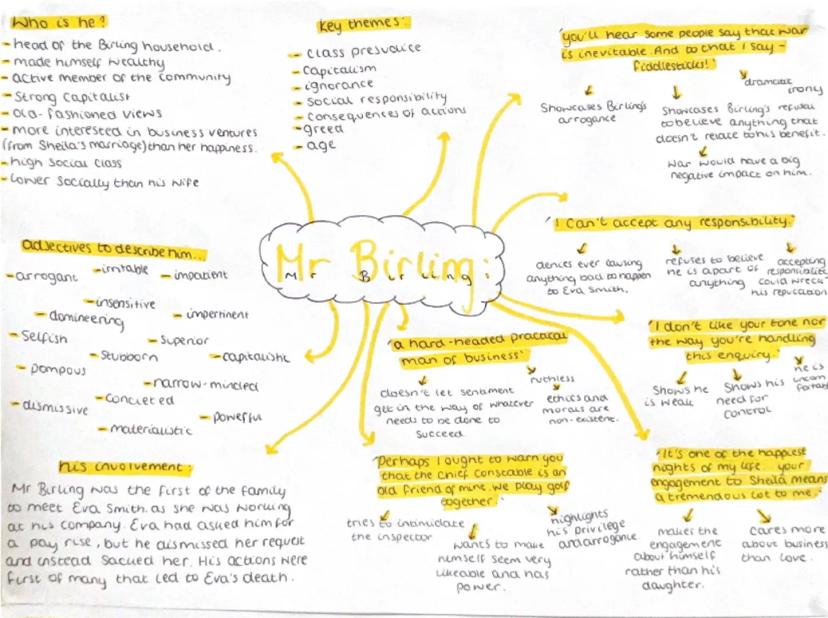 Who is he?
- head of the Birling household.
- made himself wealthy
- active member of the community
- Strong Capitalist
- old-fashioned views
- more interested in business ventures
(from Sheila's marriage) than her happiness.
- high social class
- lower socially than his wife
Key themes:
- class prejudice
- capitalism
- ignorance
- social responsibility
- consequences of actions
- greed
- age
'you'll hear some people say that war
is inevitable. And to that I say -
fiddlesticks!'
Showcases Birling's
arrogance
Showcases Birling's refusal
to believe anything that
doesn't relate to his benefit.
war would have a big
negative impact on him.
dramatic
irony
Mr Birling:
Mr Birling:
'I can't accept any responsibility.'
denies ever causing
anything bad to happen
to Eva Smith.
refuses to believe
he is apart of
anything
accepting
responsibility
could wreck
his reputation
adjectives to describe him...
- arrogant
- irritable
- impatient
- insensitive
- domineering
- impertinent
- Selfish
- Superior
- Stubborn
- capitalistic
- pompous
- narrow-minded
- concieted
- dismissive
- powerful
- materialistic
'a hard-headed practical
man of business'
doesn't let sentament
get in the way of whatever
needs to be done to
succeed
ruthless
ethics and
morals are
non-existent.
'I don't like your tone nor
the way you're handling
this enquiry.'
Shows he
is weak
Shows his
need for
control
he is
uncom
fortable
his involvement:
Mr Birling was the first of the family
to meet Eva Smith. as she was working
at his company. Eva had asked him for
a pay rise, but he dismissed her request
and instead sacked her. His actions were
first of many that led to Eva's death.
'Perhaps I ought to warn you
that the chief constable is an
old friend of mine. We play golf
together'
tries to intimidate
the inspector
wants to make
himself seem very
likeable and has
power.
highlights
his privilege
and arrogance.
'It's one of the happiest
nights of my life. your
engagement to Sheila means
a tremendous lot to me.'
makes the
engagement
about himself
rather than his
daughter.
cares more
about business
than love.